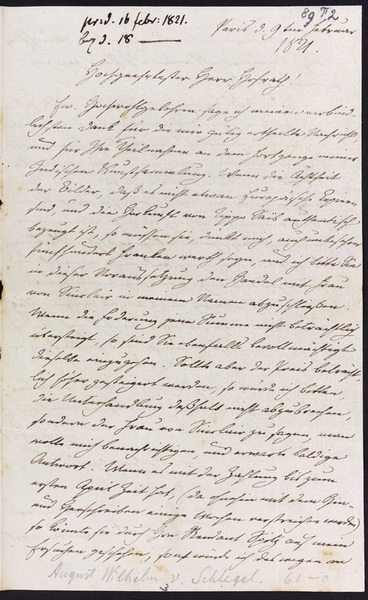 prs. d. 16 febr: 1821.
beg d. 18 —
89 72
Paris d. 9ten Februar
1821.
Hochgeehrtester Herr Hofrath!
Ew. Hochwohlgebohren sage ich meinen verbind-
lichsten Dank für die mir gütig ertheilte Nachricht
und für Ihre Theilnahme an dem Fortgange meiner
Indischen Kunstsammlung. Wenn die Aechtheit
der Bilder, daß es nicht etwan Europäische Copien
sind, und die Herkunft von Tippo Saib authentisch
bezeugt ist, so müssen sie, dünkt mich, auch unbesehen
fünfhundert Franken werth seyn, und ich bitte Sie
in dieser Voraussetzung den Handel mit Frau
von Sinclair in meinem Namen abzuschließen.
Wenn die Foderung jene Summe nicht beträchtlich
übersteigt, so sind Sie ebenfalls bevollmächtigt
dieselbe einzugehen. Sollte aber der Preis beträcht-
lich höher gesteigert werden, so würde ich bitten,
die Unterhandlung deßhalb nicht abzubrechen,
sondern der Frau von Sinclair zu sagen, man
wolle mich benachrichtigen, und erwarte baldige
Antwort. Wenn es mit der Zahlung bis zum
ersten April Zeit hat, (da ohnehin mit dem Hin-
und Herschreiben einige Wochen verstreichen werden)
so könnte sie durch Ihn auf mein
Ersuchen geschehen, sonst würde ich deswegen an
August Wilhelm v. Schlegel.